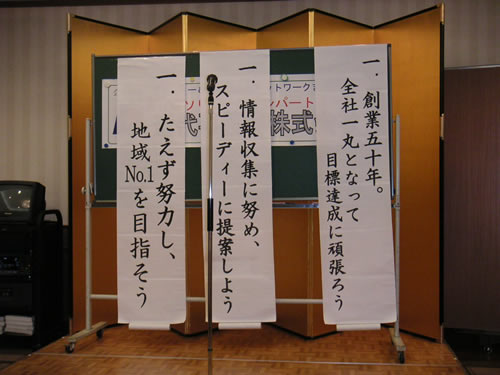 一．創業五十年。
全社一丸となって
目標達成に頑張ろう
一．情報収集に努め、
スピーディーに提案しよう
一．たえず努力し、
地域No.1を目指そう